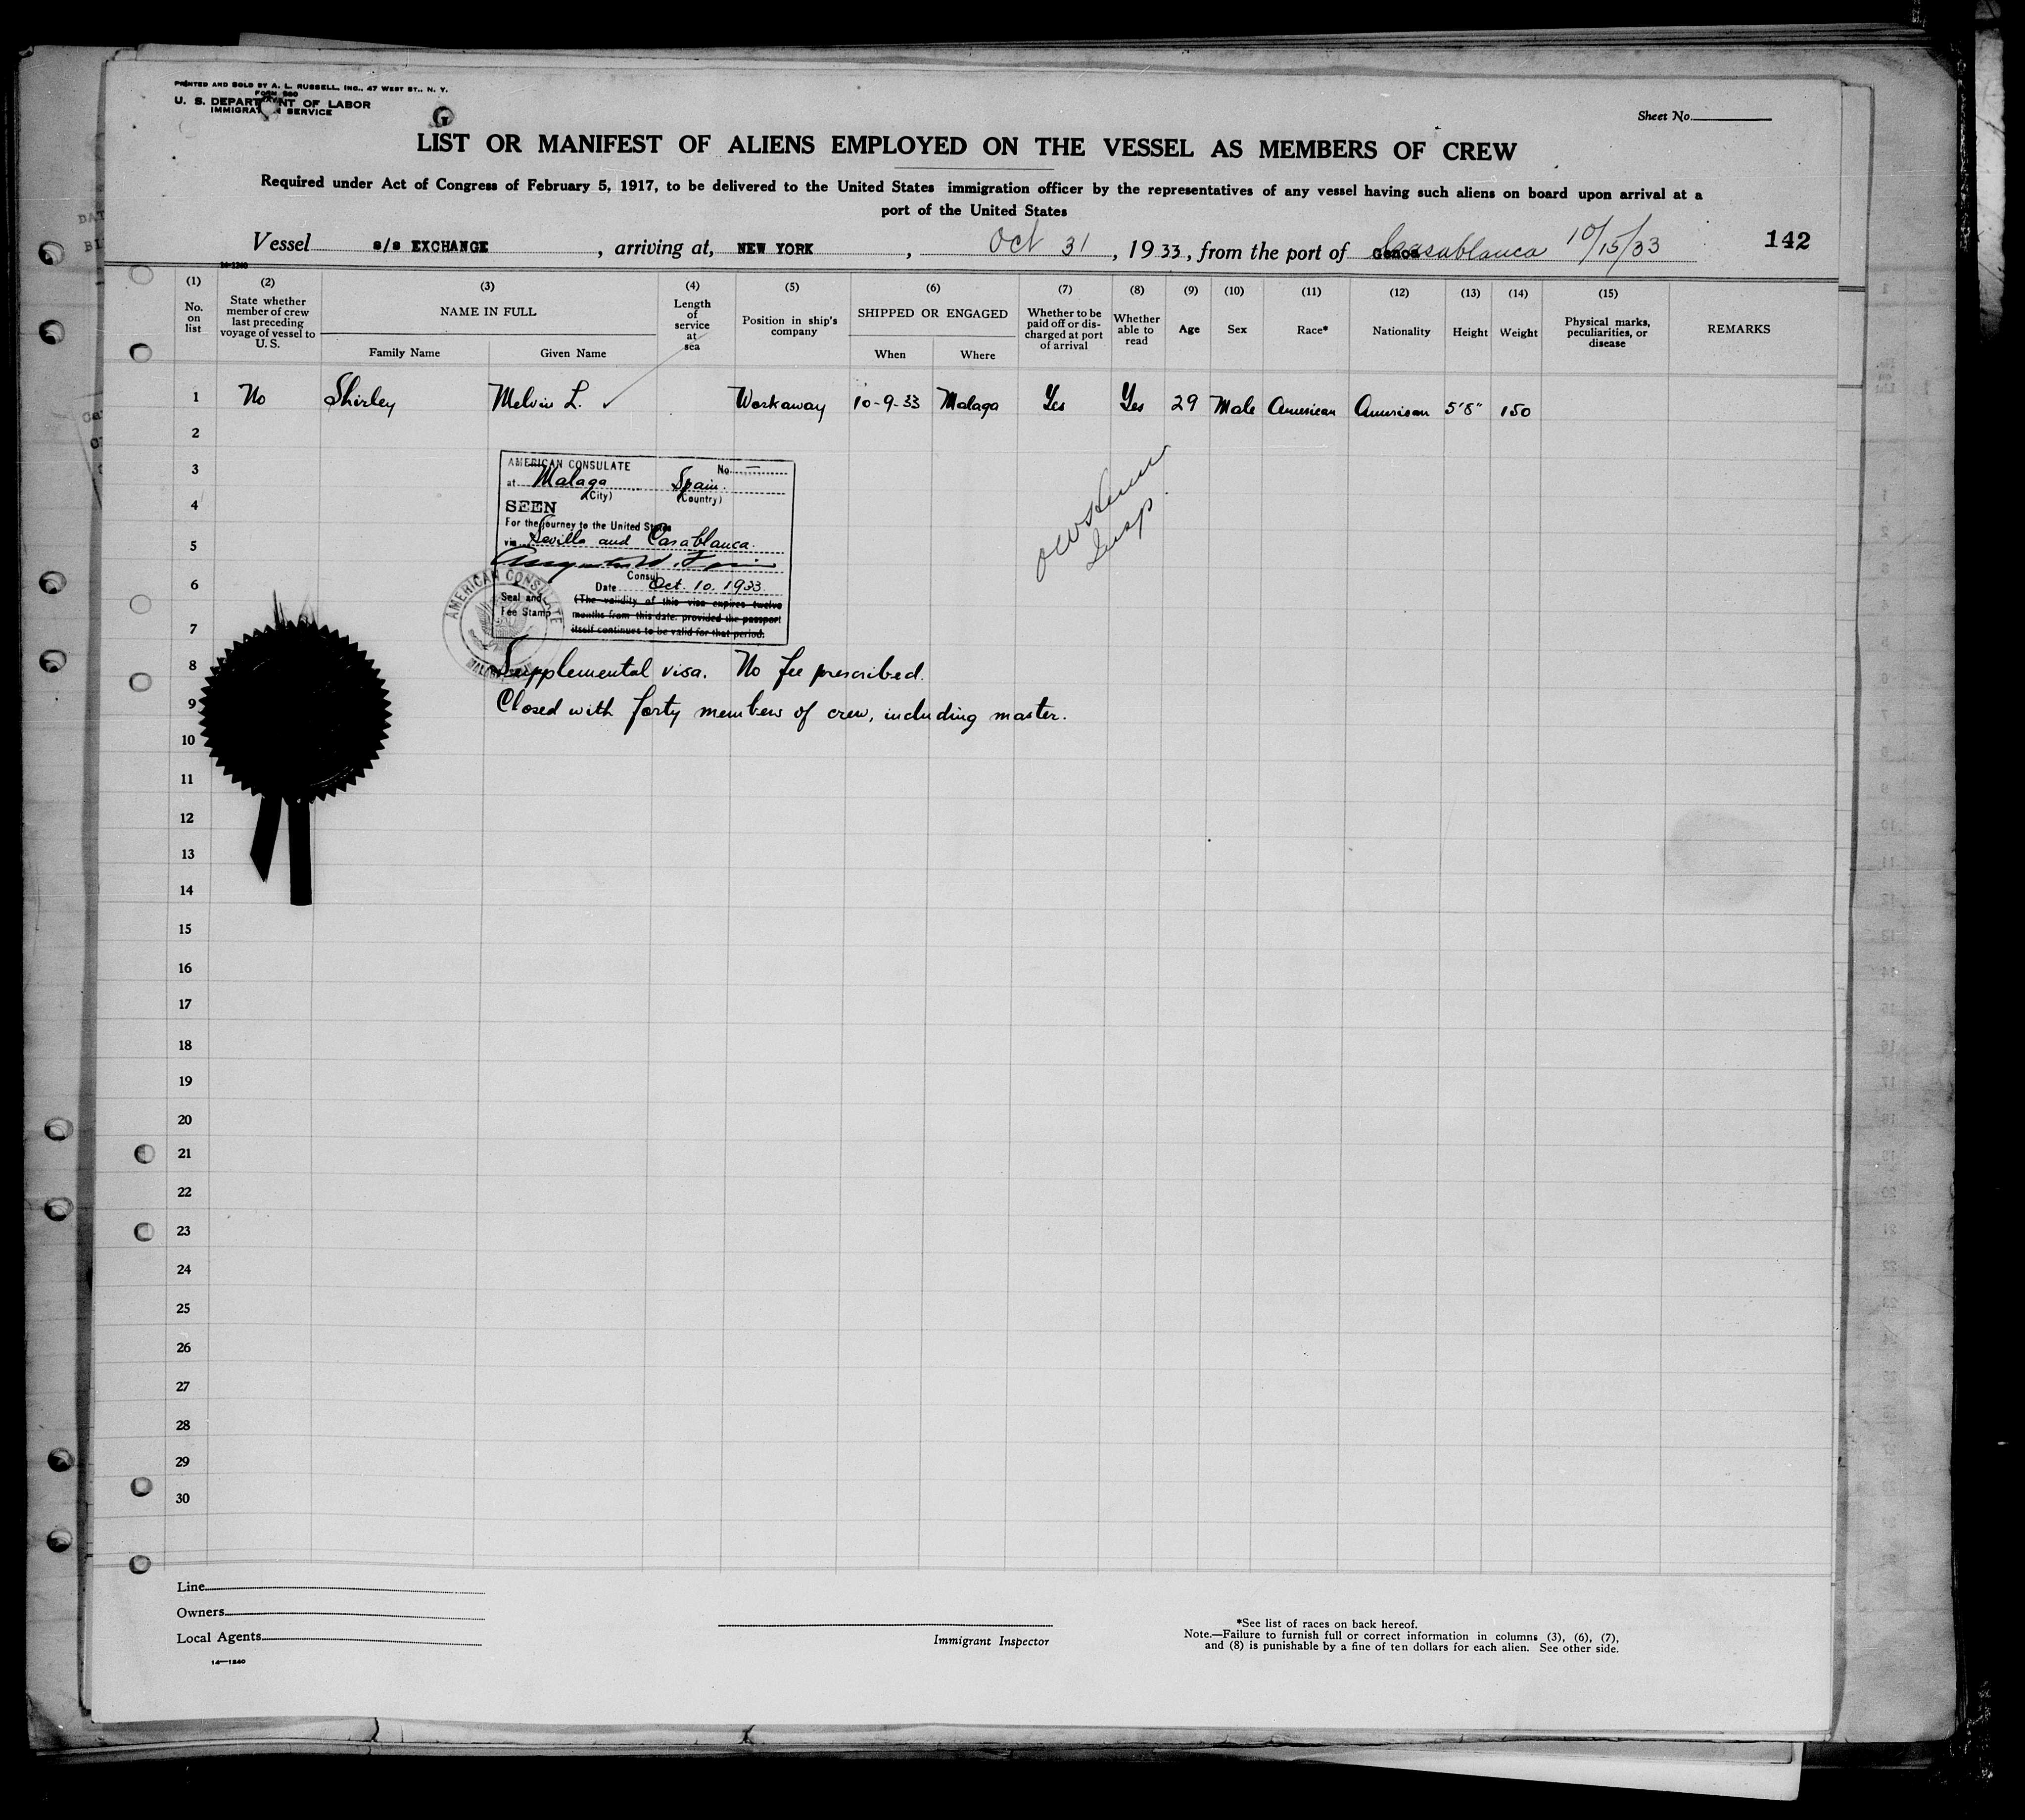 PRINTED AND SOLD BY A. L. RUSSELL, INC., 47 WEST ST., N. Y.
FORM 680
U. S. DEPARTMENT OF LABOR
IMMIGRATION SERVICE
G
Sheet No.
LIST OR MANIFEST OF ALIENS EMPLOYED ON THE VESSEL AS MEMBERS OF CREW
Required under Act of Congress of February 5, 1917, to be delivered to the United States immigration officer by the representatives of any vessel having such aliens on board upon arrival at a
port of the United States
Vessel s/s EXCHANGE, arriving at, NEW YORK, Oct 31, 1933, from the port of Casablanca 10/15/33 142
14-1240
(1) (2) (3) (4) (5) (6) (7) (8) (9) (10) (11) (12) (13) (14) (15)
No. on list
State whether member of crew last preceding voyage of vessel to U. S.
NAME IN FULL
Family Name
Given Name
Length of service at sea
Position in ship's company
SHIPPED OR ENGAGED
When
Where
Whether to be paid off or discharged at port of arrival
Whether able to read
Age
Sex
Race*
Nationality
Height
Weight
Physical marks, peculiarities, or disease
REMARKS
1 No Shirley Melvin L. ✓ Workaway 10-9-33 Malaga Yes Yes 29 Male American American 5'8" 150
2
3
4
5
6
7
8
9
10
11
12
13
14
15
16
17
18
19
20
21
22
23
24
25
26
27
28
29
30
AMERICAN CONSULATE No. —
at Malaga Spain.
(City) (Country)
SEEN
For the journey to the United States
via Sevilla and Casablanca.
Consul
Date Oct. 10. 1933.
Seal and
Fee Stamp
(The validity of this visa expires twelve
months from this date. provided the passport
itself continues to be valid for that period.
AMERICAN CONSULATE
Supplemental visa. No fee prescribed.
Closed with forty members of crew, including master.
Insp.
Line
Owners
Local Agents
14—1240
Immigrant Inspector
*See list of races on back hereof.
Note.—Failure to furnish full or correct information in columns (3), (6), (7),
and (8) is punishable by a fine of ten dollars for each alien. See other side.